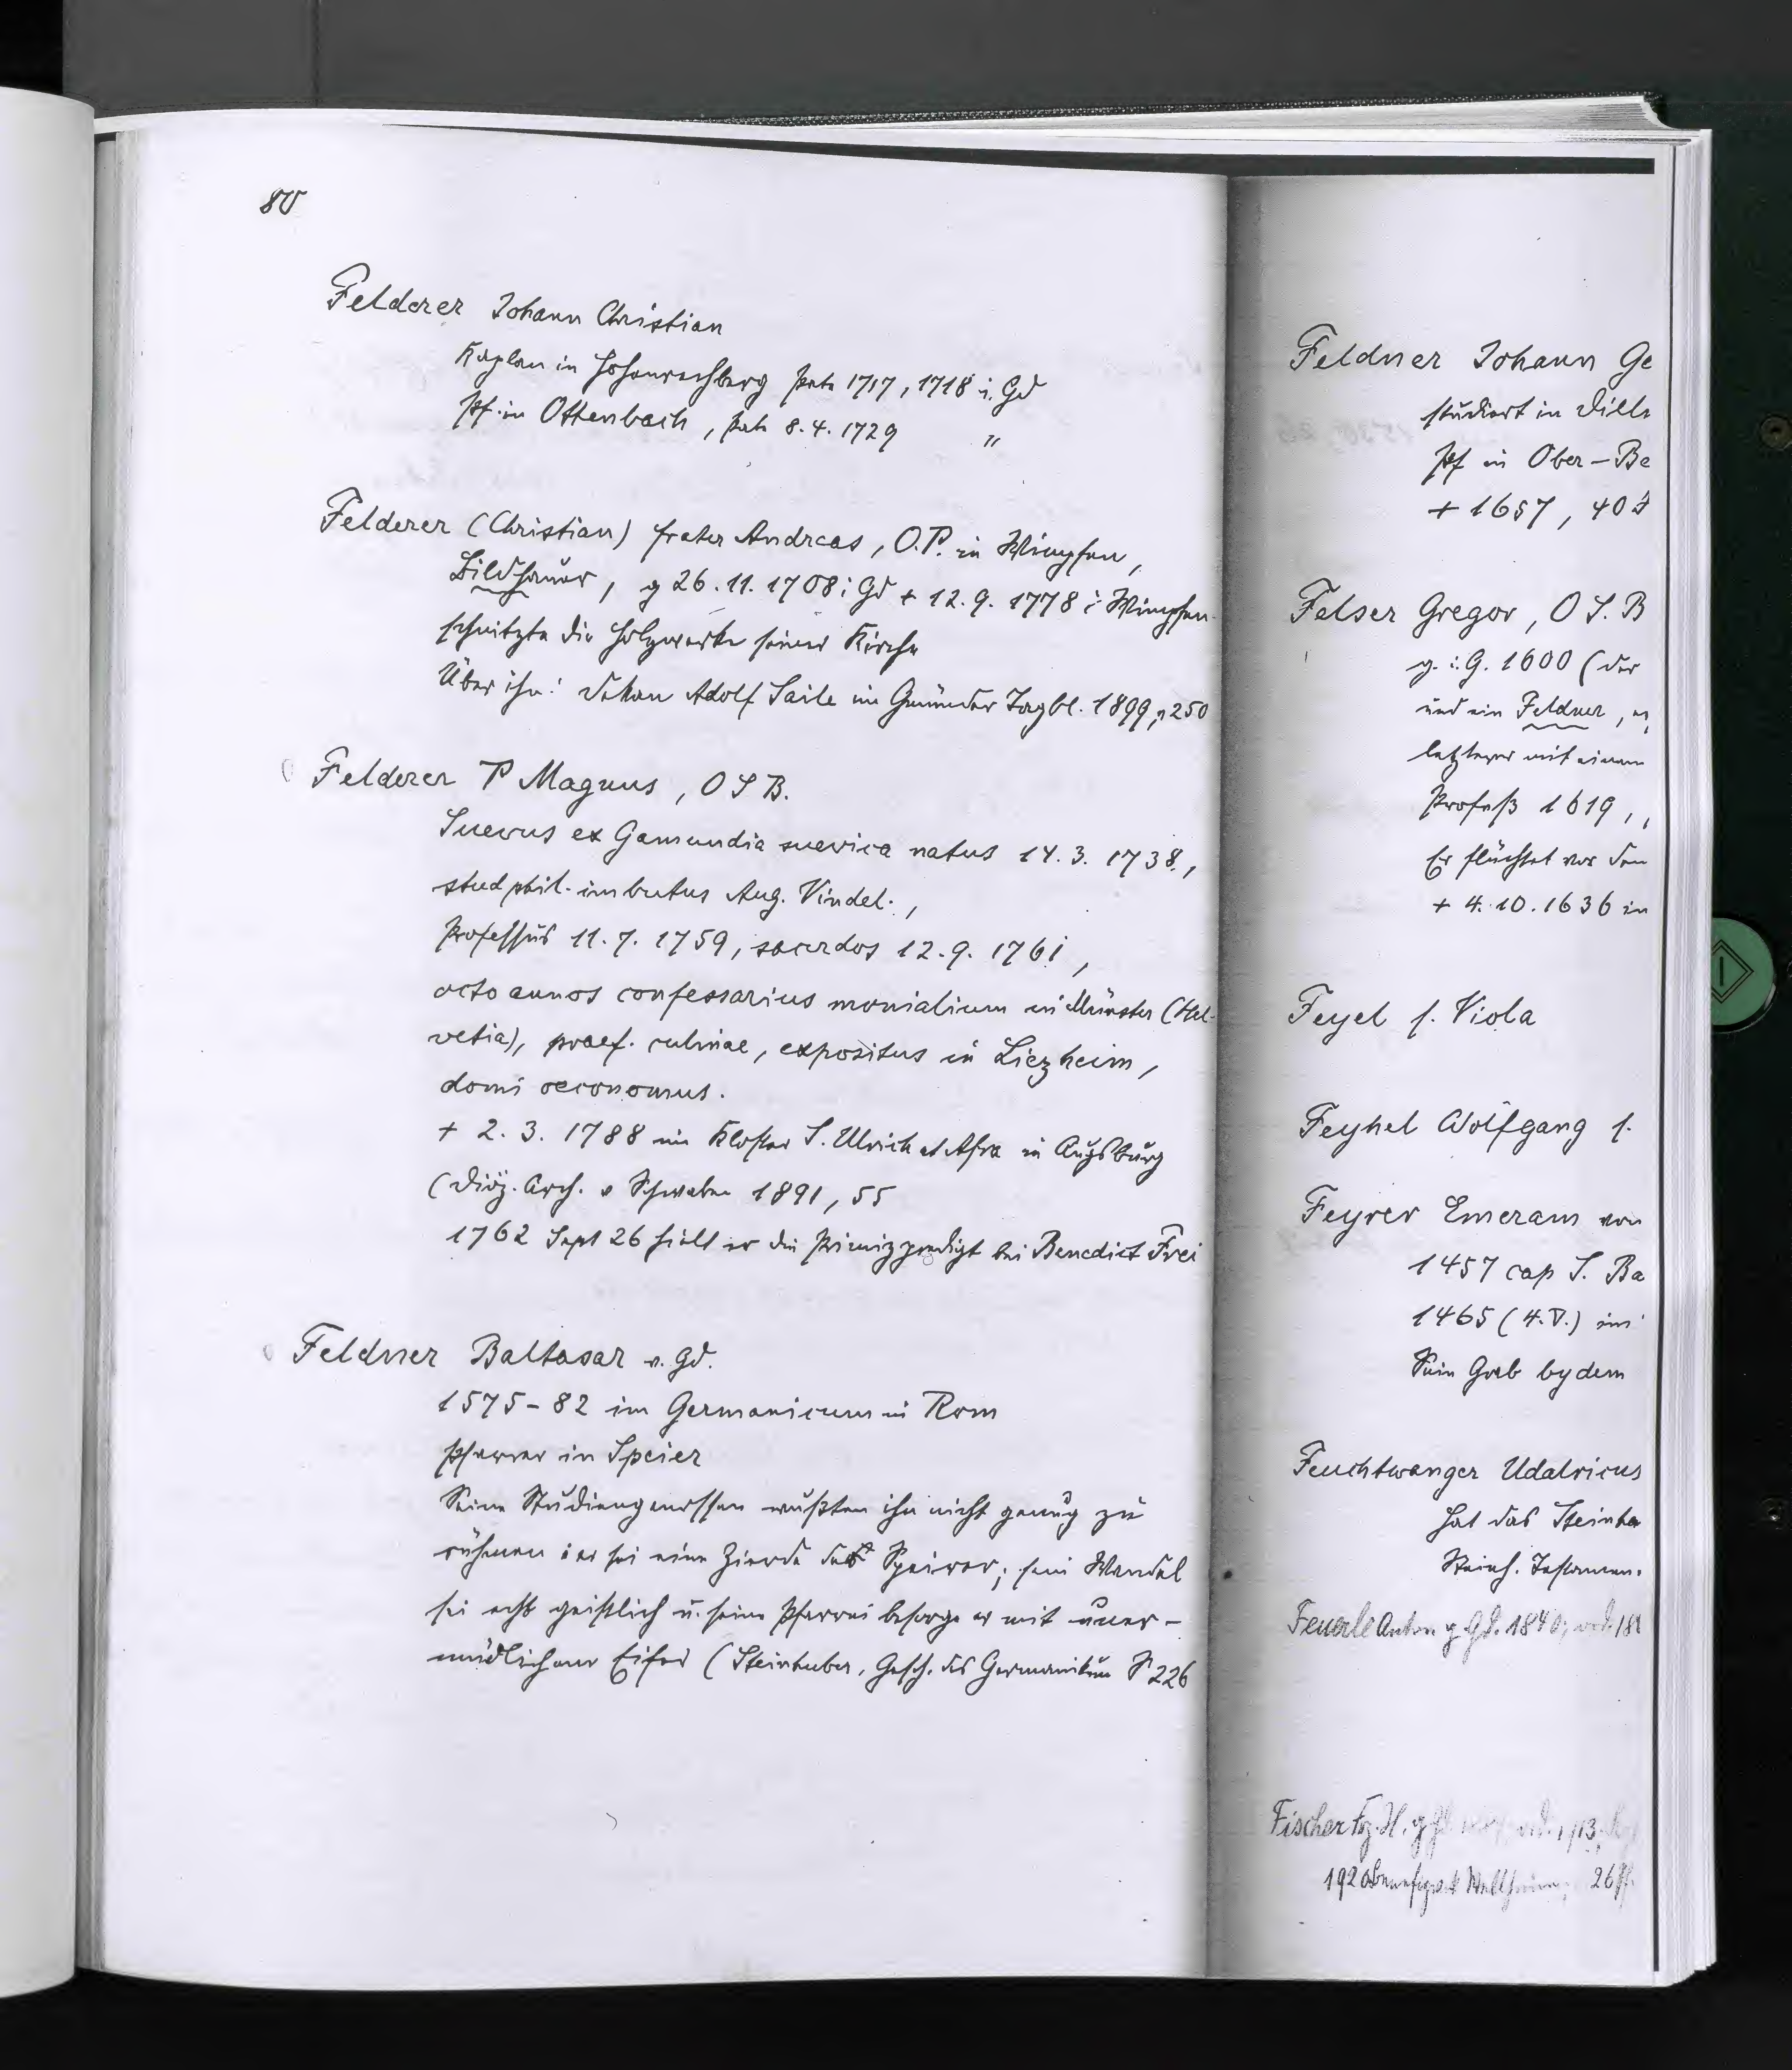 80
Felderer Johann Christian
Kaplan in Hohenrechberg Pate 1717, 1718 i. Gd
Pf. in Ottenbach, Pate 8.4.1729 "
Felderer (Christian) frater Andreas, O.P. in Wimpfen,
Bildhauer, g 26.11.1708 i Gd + 12.9.1778 i Wimpfen.
schnitzte die Holzwerke seiner Kirche
Über ihn: Dekan Adolf Saile im Gmünder Tagbl. 1899, 250
Felderer P Magnus, O S B.
Suevus ex Gamundia suevica natus 14.3.1738.,
stud phil. imbutus Aug. Vindel.,
Professus 11.7.1759, sacerdos 12.9.1761,
octo annos confessarius monialium in Münster (Hel-
vetia), praef. culinae, expositus in Liezheim,
domi oeconomus.
+ 2.3.1788 im Kloster S. Ulrich et Afra in Augsburg
(Diöz. Arch. v Schwaben 1891, 55
1762 Sept 26 hielt er die Primizpredigt bei Benedict Frei
Feldner Baltasar v. Gd.
1575-82 im Germanicum in Rom
Pfarrer in Speier
Seine Studiengenossen wußten ihn nicht genug zu
rühmen: er sei eine Zierde der Speirer; sein Wandel
sei echt geistlich u. seine Pfarrei besorge er mit uner-
müdlichem Eifer (Steinhuber, Gesch. des Germanikum S 226
Feldner Johann Ge
studiert in Dill
Pf in Ober-Be
+ 1657, 40 J
Felser Gregor, O S. B
g. i. G. 1600 (der
und ein Feldner,
letzterer mit einem
Profeß 1619,
Er flüchtet vor den
+ 4.10.1636 in
Feyel s. Viola
Feyhel Wolfgang s.
Feyrer Emeram von
1457 cap S. Ba
1465 (4.V.) im
Sein Grab by dem
Feuchtwanger Udalricus
hat das Steinha
Reich. Testamen.
Feuerle Anton g Gd. 1840; ord. 18
Fischer Frz. X. g Gd. ord. 1913;
1920 26 Pf.